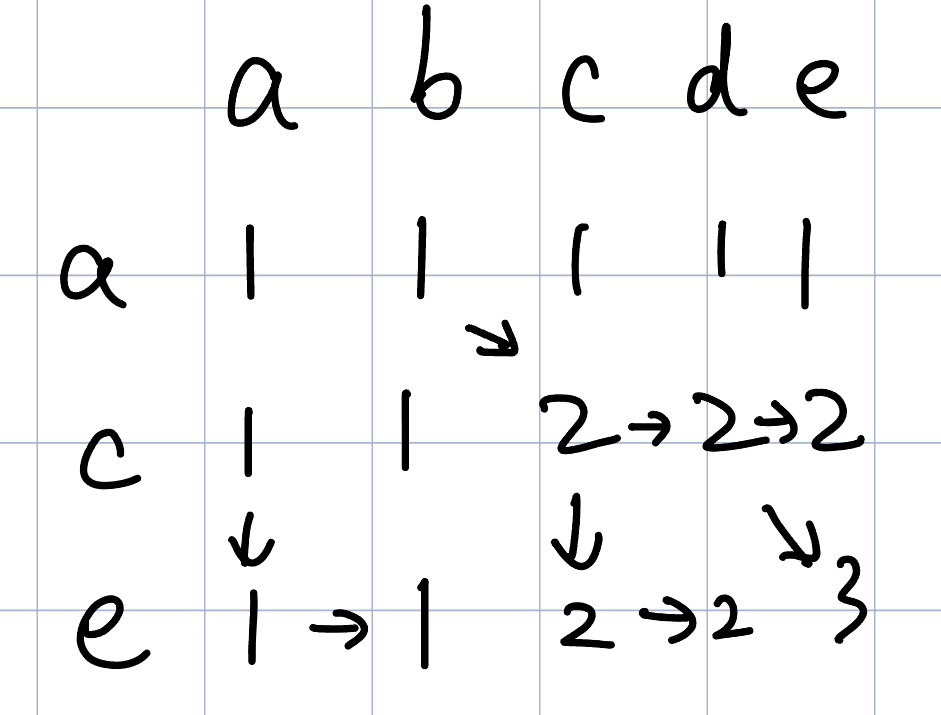 a b c d e
a 1 1 1 1 1
↘
c 1 1 2 → 2 → 2
↓ ↓ ↘
e 1 → 1 2 → 2 3